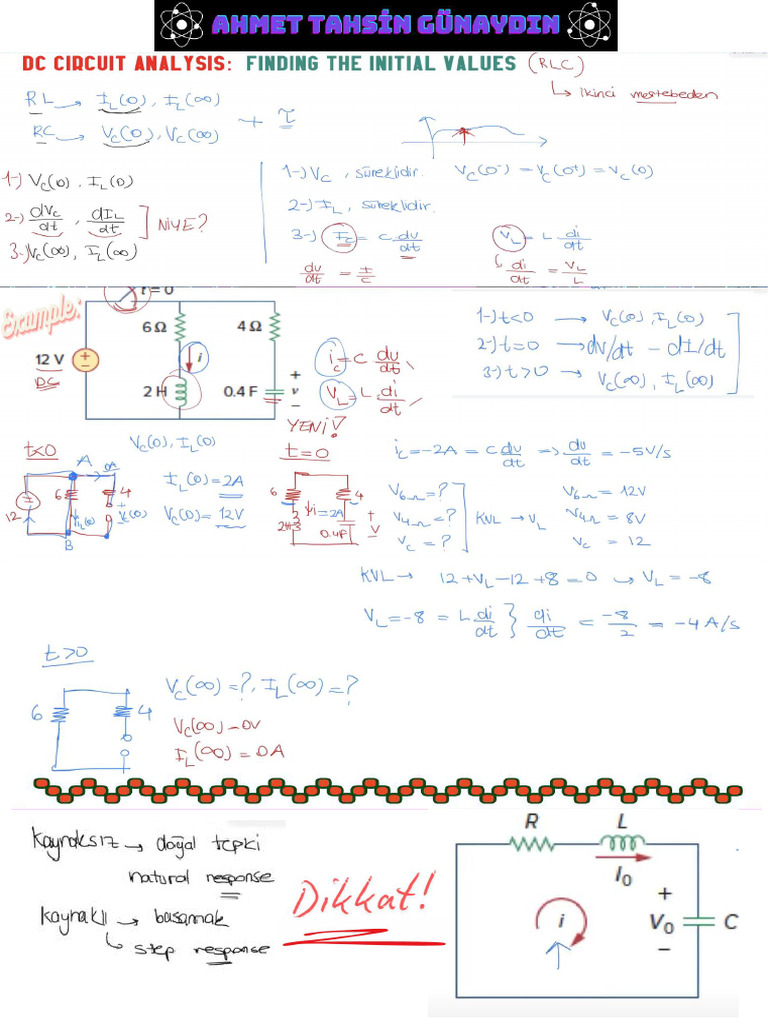 AHMET TAHSİN GÜNAYDIN
DC CIRCUIT ANALYSIS: FINDING THE INITIAL VALUES (RLC)
↳ ikinci mertebeden
RL → I_L(0), I_L(∞)
RC → V_C(0), V_C(∞)
+ τ
1-) V_C(0), I_L(0)
2-) dV_C/dt, dI_L/dt ] NİYE?
3-) V_C(∞), I_L(∞)
1-) V_C, süreklidir. V_C(0⁻) = V_C(0⁺) = V_C(0)
2-) I_L, süreklidir.
3-) I_C = C dv/dt V_L = L di/dt
dv/dt = I/C ↳ di/dt = V_L/L
Example:
t = 0
6 Ω 4 Ω
12 V + − i
DC
2 H 0.4 F + v −
i_C = C dv/dt
V_L = L di/dt
YENİ!
1-) t<0 → V_C(0), I_L(0)
2-) t=0 → dv/dt − dI/dt
3-) t>0 → V_C(∞), I_L(∞)
t<0 V_C(0), I_L(0)
A 0A
12 6 4 I_L(0) + V_C(0) −
B
I_L(0) = 2A
V_C(0) = 12V
t=0
6 4
i=2A
2H 0.4F + V −
i_C = −2A = C dv/dt ⇒ dv/dt = −5V/s
V_6Ω = ? V_6Ω = 12V
V_4Ω = ? KVL → V_L V_4Ω = 8V
V_C = ? V_C = 12
KVL → 12 + V_L − 12 + 8 = 0 → V_L = −8
V_L = −8 = L di/dt } di/dt = −8/2 = −4 A/s
t>0
6 4
V_C(∞) = ?, I_L(∞) = ?
V_C(∞) − 0V
I_L(∞) = 0A
Kaynaksız → doğal tepki
natural response
Kaynaklı → basamak
↳ step response
Dikkat!
R L
I₀
i
+ V₀ −
C